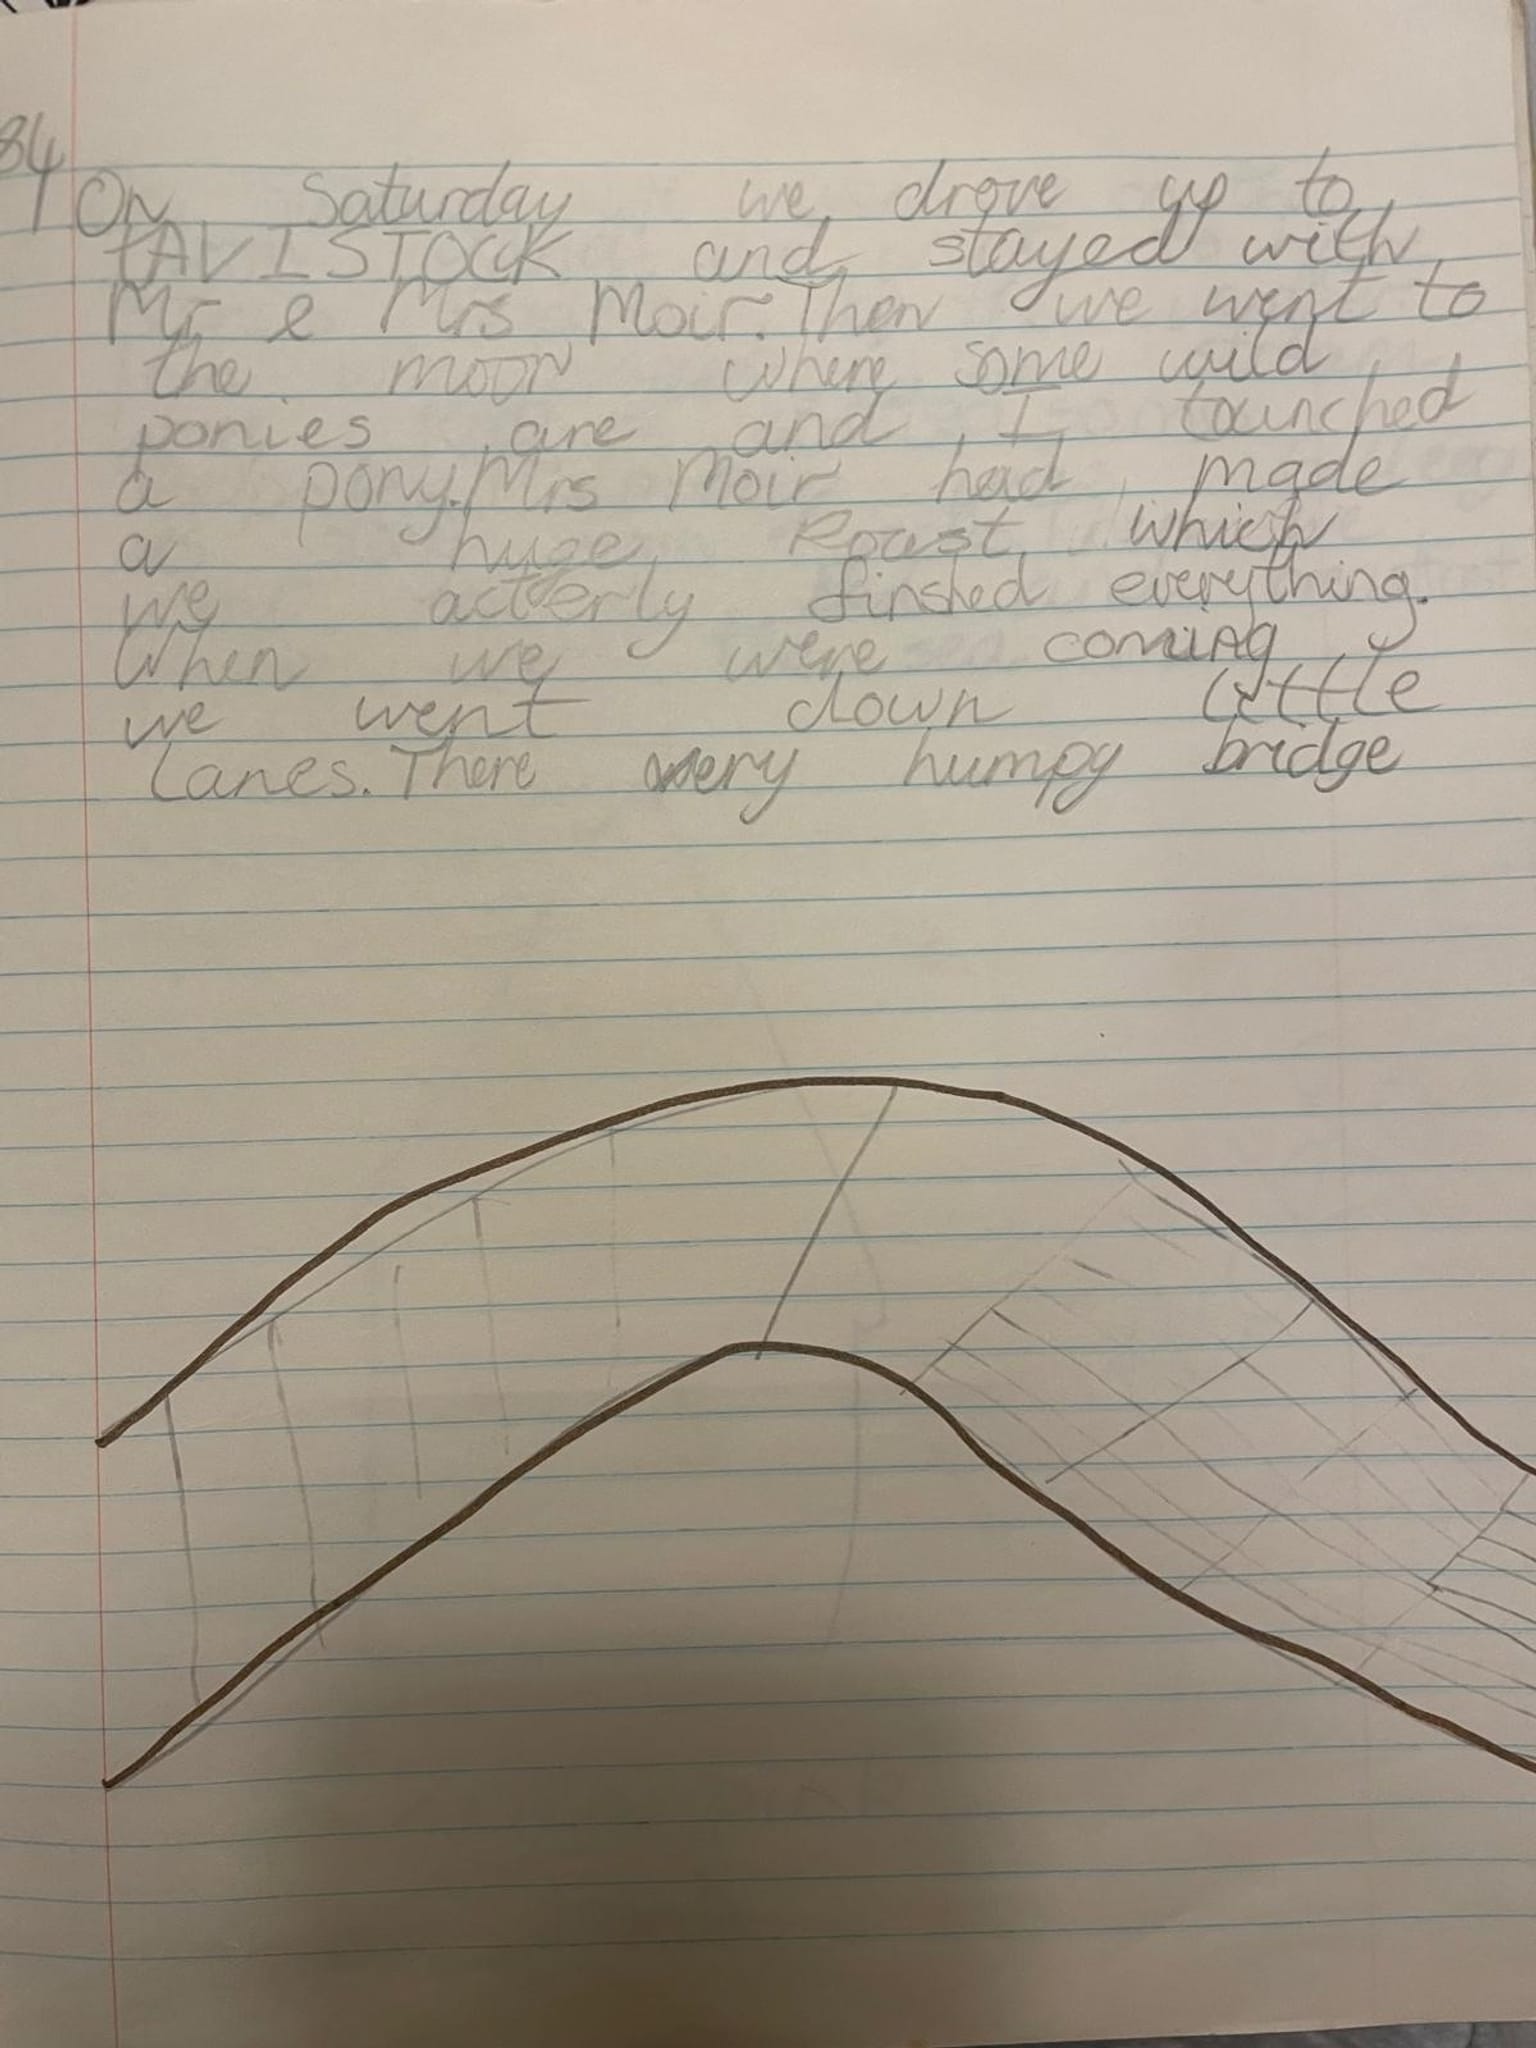 84
On Saturday we drove up to
tAVISTOCK and stayed with
Mr e Mrs Moir. Then we went to
the moor where some wild
ponies are and I tounched
a pony. Mrs Moir had made
a huge Roast which
we acterly finshed everything.
When we were coming
we went down little
lanes. There very humpy bridge